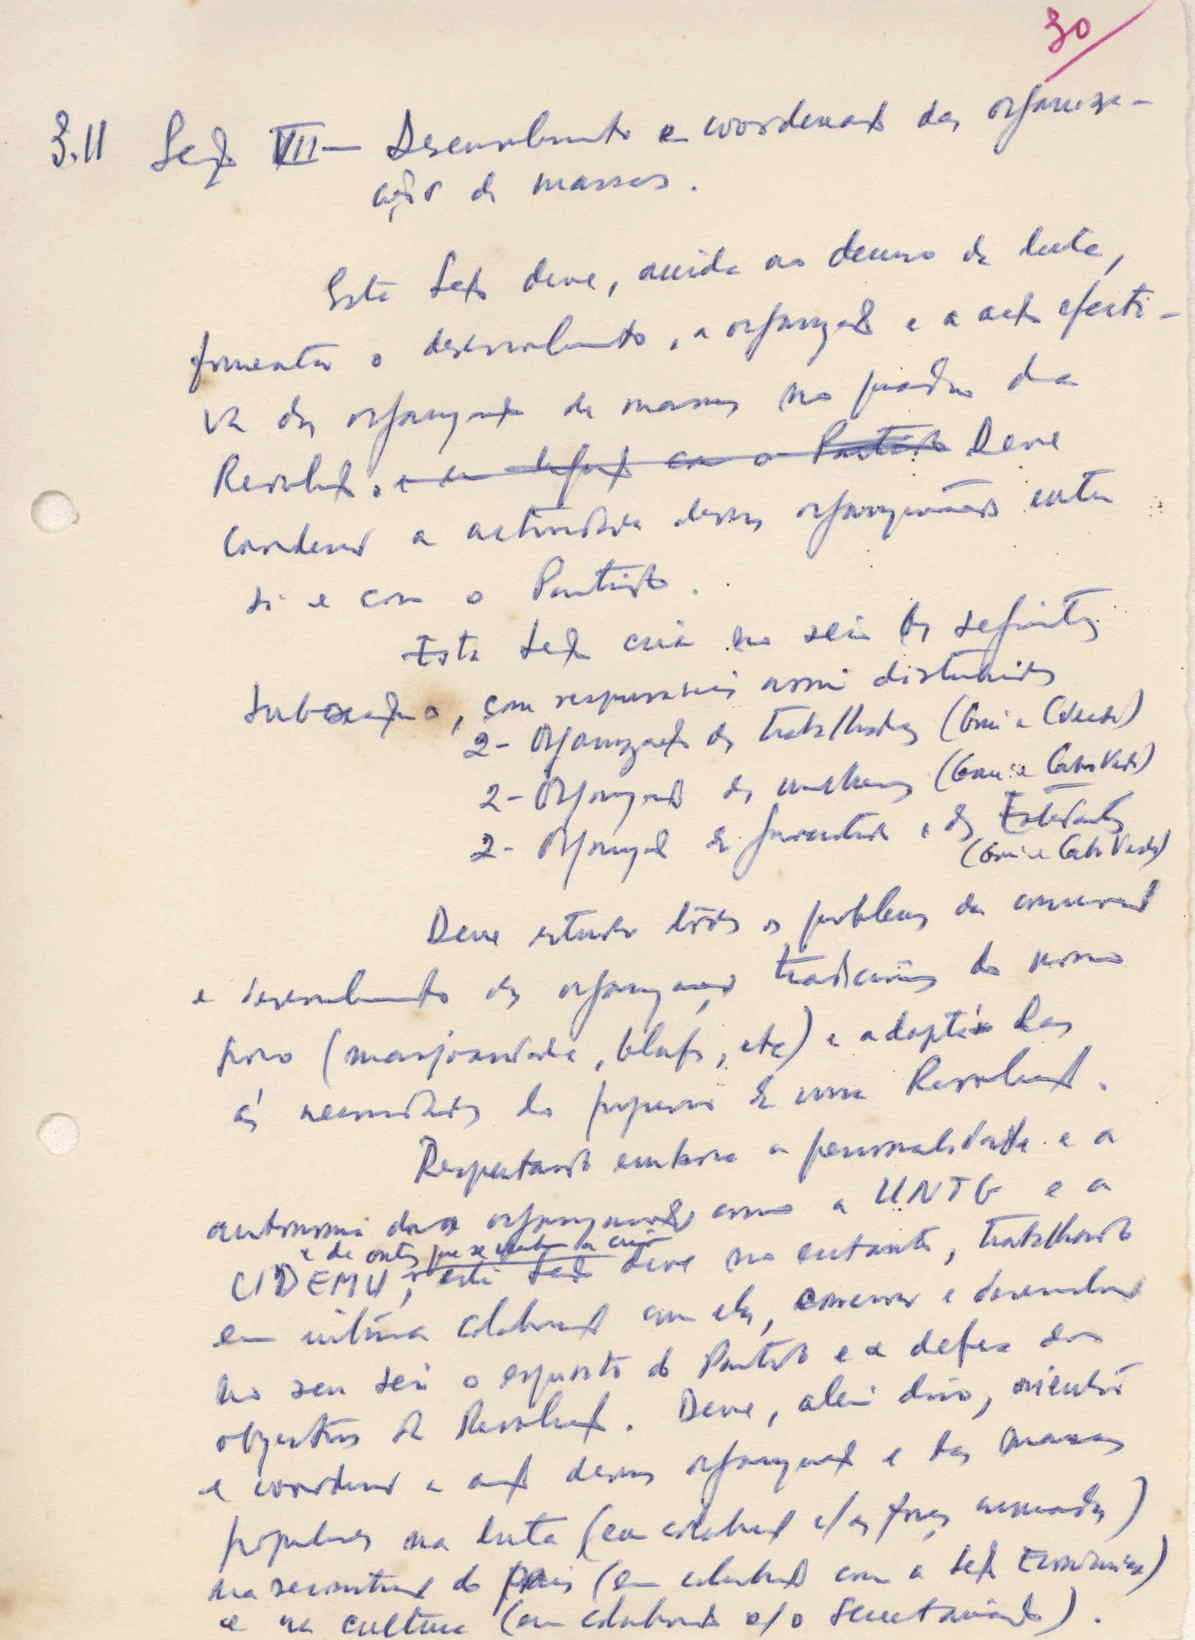 30
3.11 Secção VII — Desenvolvimento e coordenação das organiza-
ções de massas.
Esta Secção deve, ainda no decurso da luta,
fomentar o desenvolvimento, a organização e a acção efecti-
va das organizações de massas no quadro da
Revolução. e em ligação com o Partido Deve
coordenar a actividade dessas organizações entre
si e com o Partido.
Esta Secção cria no seio as seguintes
subsecções, com responsáveis assim distribuidos
2- Organização dos trabalhadores (Guiné e C. Verde)
2- Organização das mulheres (Guiné e Cabo Verde)
2- Organização da Juventude e dos Estudantes
(Guiné e Cabo Verde)
Deve estudar todos os problemas da conservação
e desenvolvimento das organizações tradicionais do nosso
povo (manjuandade, etc) e adaptá-las
ás necessidades do progresso e da Revolução.
Respeitando embora a personalidade e a
autonomia das organizações como a UNTG e a
e de outras que se venham a criar
UDEMU, esta Secção deve no entanto, trabalhando
em íntima colaboração com elas, conservar e desenvolver
no seu seio o espirito do Partido e a defesa dos
objectivos da Revolução. Deve, além disso, orientar
e coordenar a acção dessas organizações e das massas
populares na luta (em colaboração c/ as forças armadas)
na reconstrução do país (em colaboração com a Secção Económica)
e na cultura (em colaboração c/ o Secretariado).